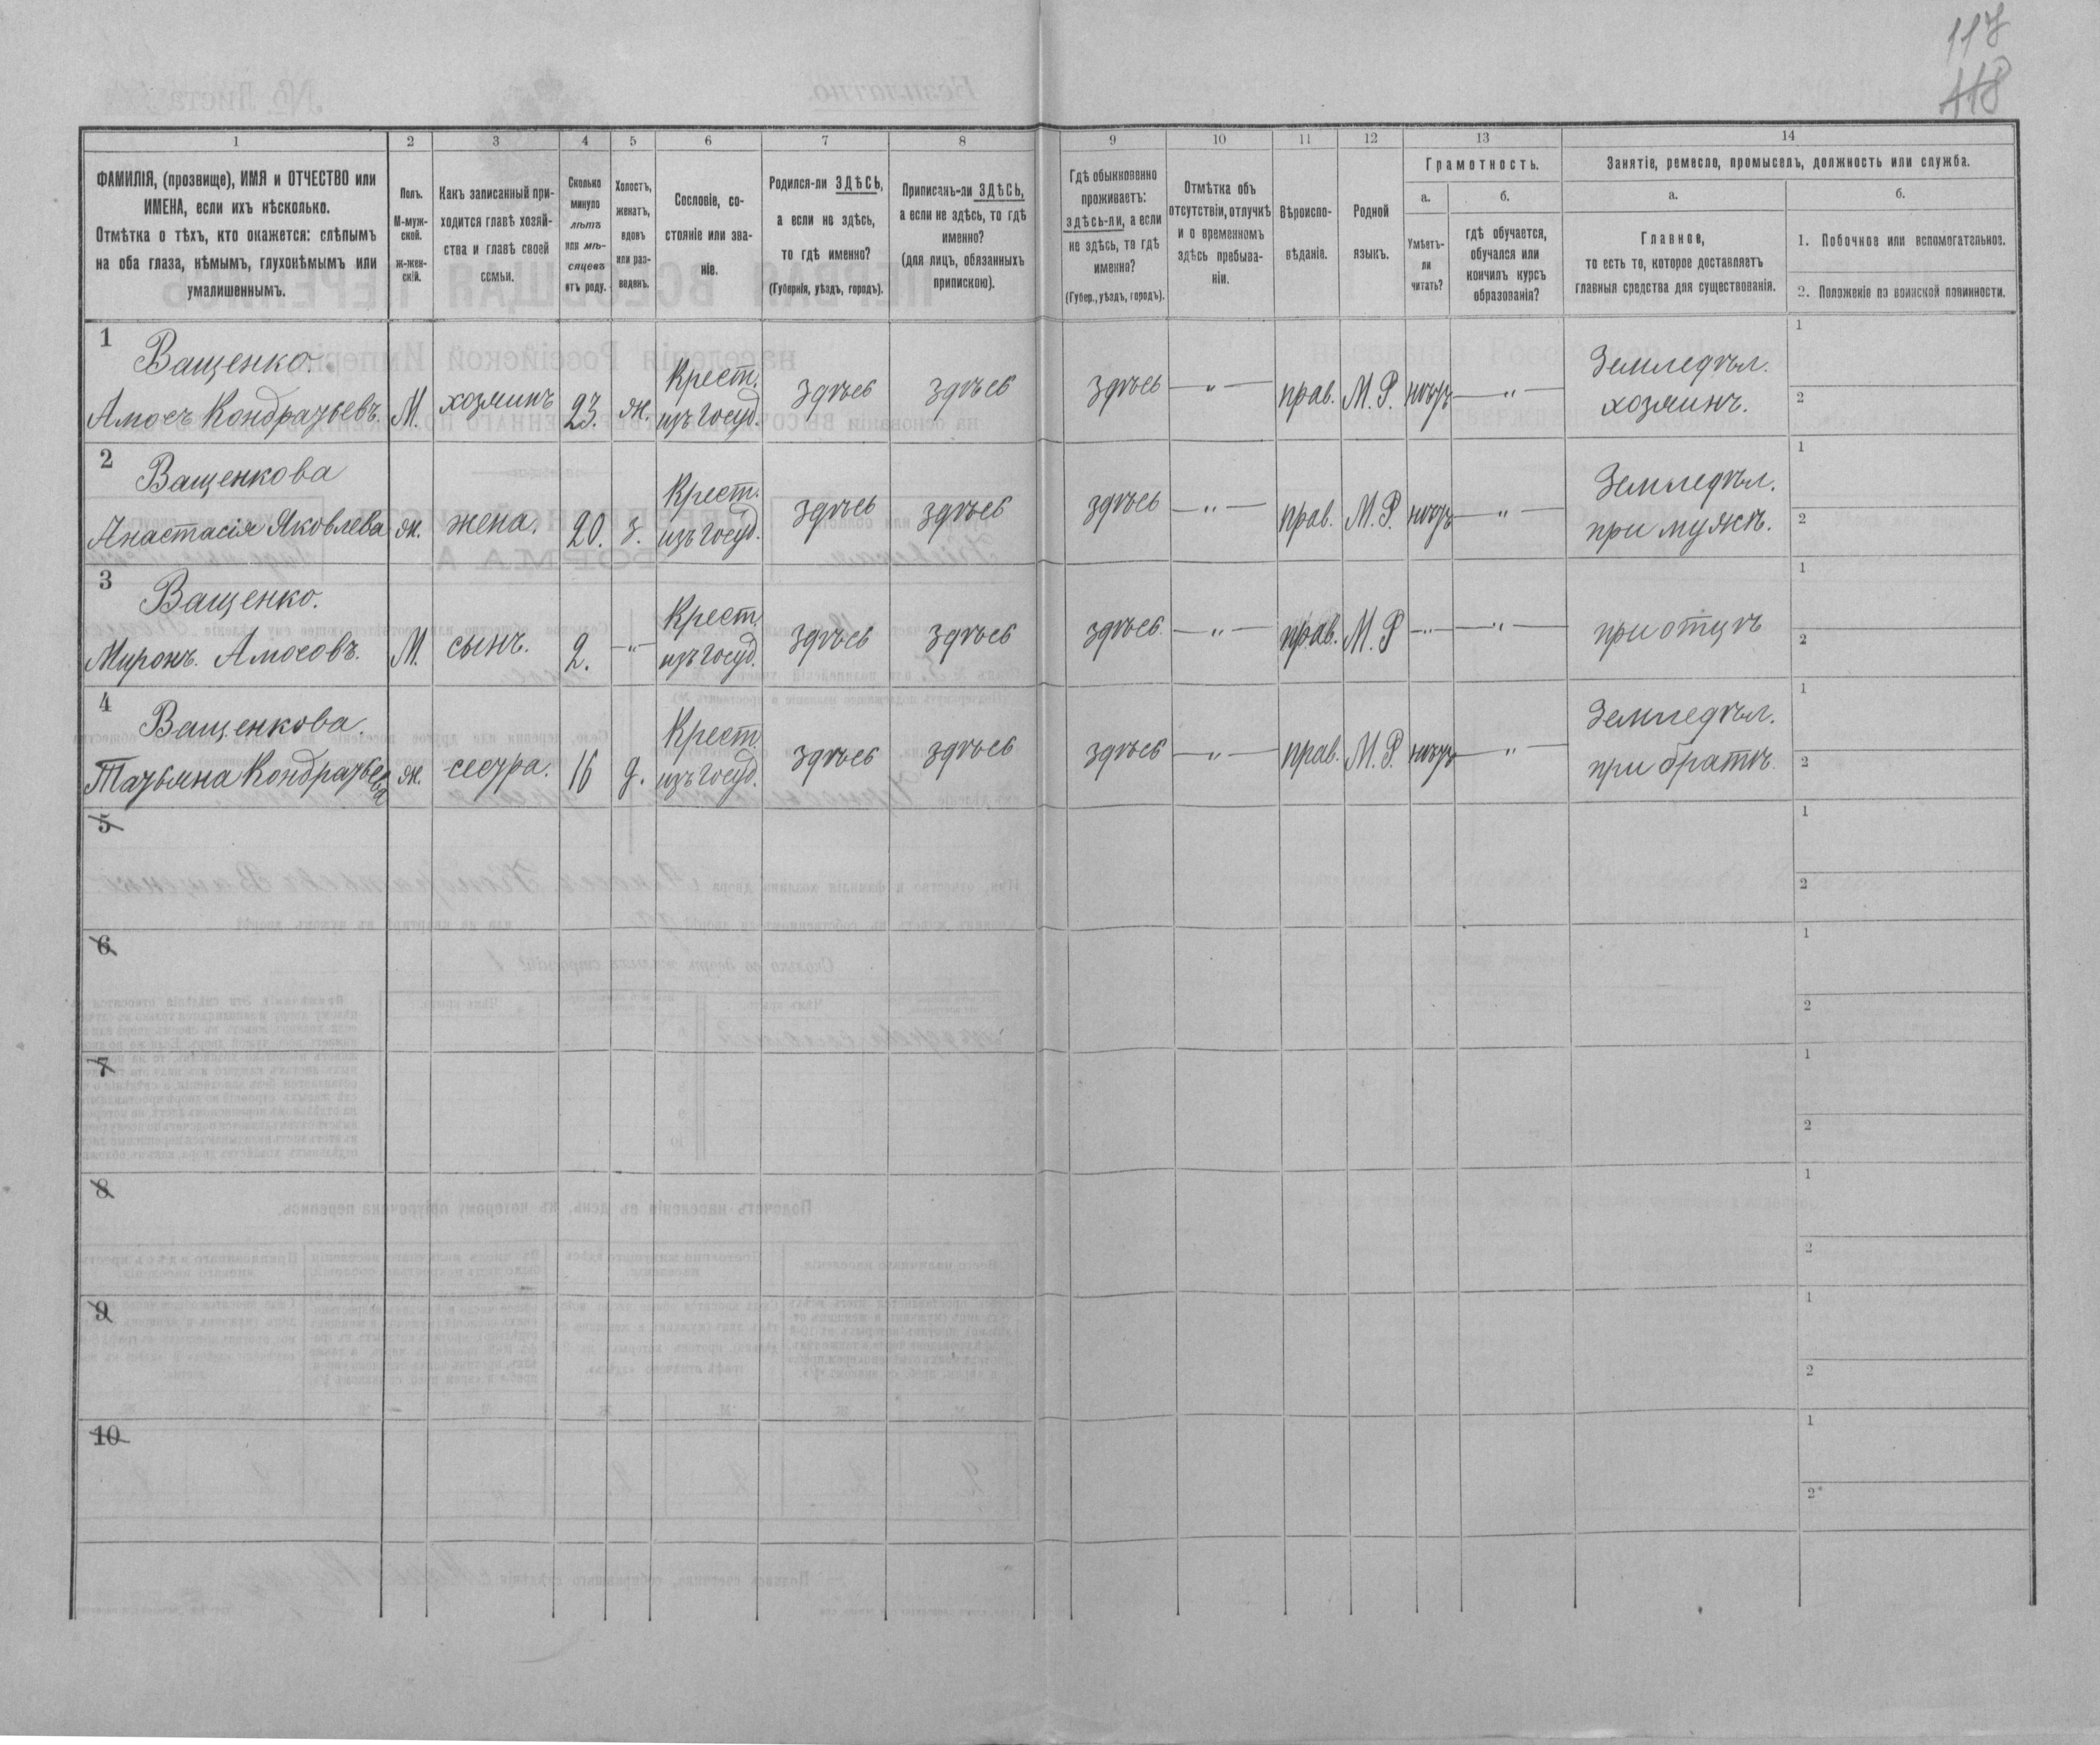 117
118
1 2 3 4 5 6 7 8 9 10 11 12 13 14
ФАМИЛІЯ, (прозвище), ИМЯ и ОТЧЕСТВО или
ИМЕНА, если ихъ нѣсколько.
Отмѣтка о тѣхъ, кто окажется: слѣпымъ
на оба глаза, нѣмымъ, глухонѣмымъ или
умалишеннымъ.
Полъ.
М-муж-
ской.
ж-жен-
скій.
Какъ записанный при-
ходится главѣ хозяй-
ства и главѣ своей
семьи.
Сколько
минуло
лѣтъ
или мѣ-
сяцевъ
отъ роду.
Холостъ,
женатъ,
вдовъ
или раз-
веденъ.
Сословіе, со-
стояніе или зва-
ніе.
Родился-ли ЗДѢСЬ,
а если не здѣсь,
то гдѣ именно?
(Губернія, уѣздъ, городъ).
Приписанъ-ли ЗДѢСЬ,
а если не здѣсь, то гдѣ
именно?
(для лицъ, обязанныхъ
припискою).
Гдѣ обыкновенно
проживаетъ:
здѣсь-ли, а если
не здѣсь, то гдѣ
именно?
(Губер., уѣздъ, городъ).
Отмѣтка объ
отсутствіи, отлучкѣ
и о временномъ
здѣсь пребыва-
ніи.
Вѣроиспо-
вѣданіе.
Родной
языкъ.
Грамотность.
а.
Умѣетъ-
ли
читать?
б.
гдѣ обучается,
обучался или
кончилъ курсъ
образованія?
Занятіе, ремесло, промыселъ, должность или служба.
а.
Главное,
то есть то, которое доставляетъ
главныя средства для существованія.
б.
1. Побочное или вспомогательное.
2. Положеніе по воинской повинности.
1 Ващенко. Крест. Земледѣл. 1
Амосъ Кондратьевъ. М. хозяинъ 23. ж. изъ госуд. здѣсь здѣсь здѣсь — „ — прав. М. Р. нѣтъ — „ — хозяинъ. 2
2 Ващенкова Крест. Земледѣл. 1
Анастасія Яковлева ж. жена. 20. з. изъ госуд. здѣсь здѣсь здѣсь — „ — прав. М. Р. нѣтъ — „ — при мужѣ. 2
3 Ващенко. Крест. 1
Миронъ. Амосовъ. М. сынъ. 2. — „ — изъ госуд. здѣсь здѣсь здѣсь. — „ — прав. М. Р — „ — — „ — при отцѣ 2
4 Ващенкова. Крест. Земледѣл. 1
Татьяна Кондратьева ж. сестра. 16 д. изъ госуд. здѣсь здѣсь здѣсь — „ — прав. М. Р. нѣтъ — „ — при братѣ. 2
5 1
2
6 1
2
7 1
2
8 1
2
9 1
2
10 1
2